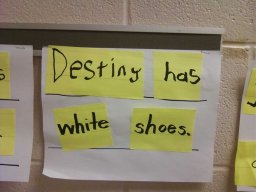 Destiny has
white shoes.